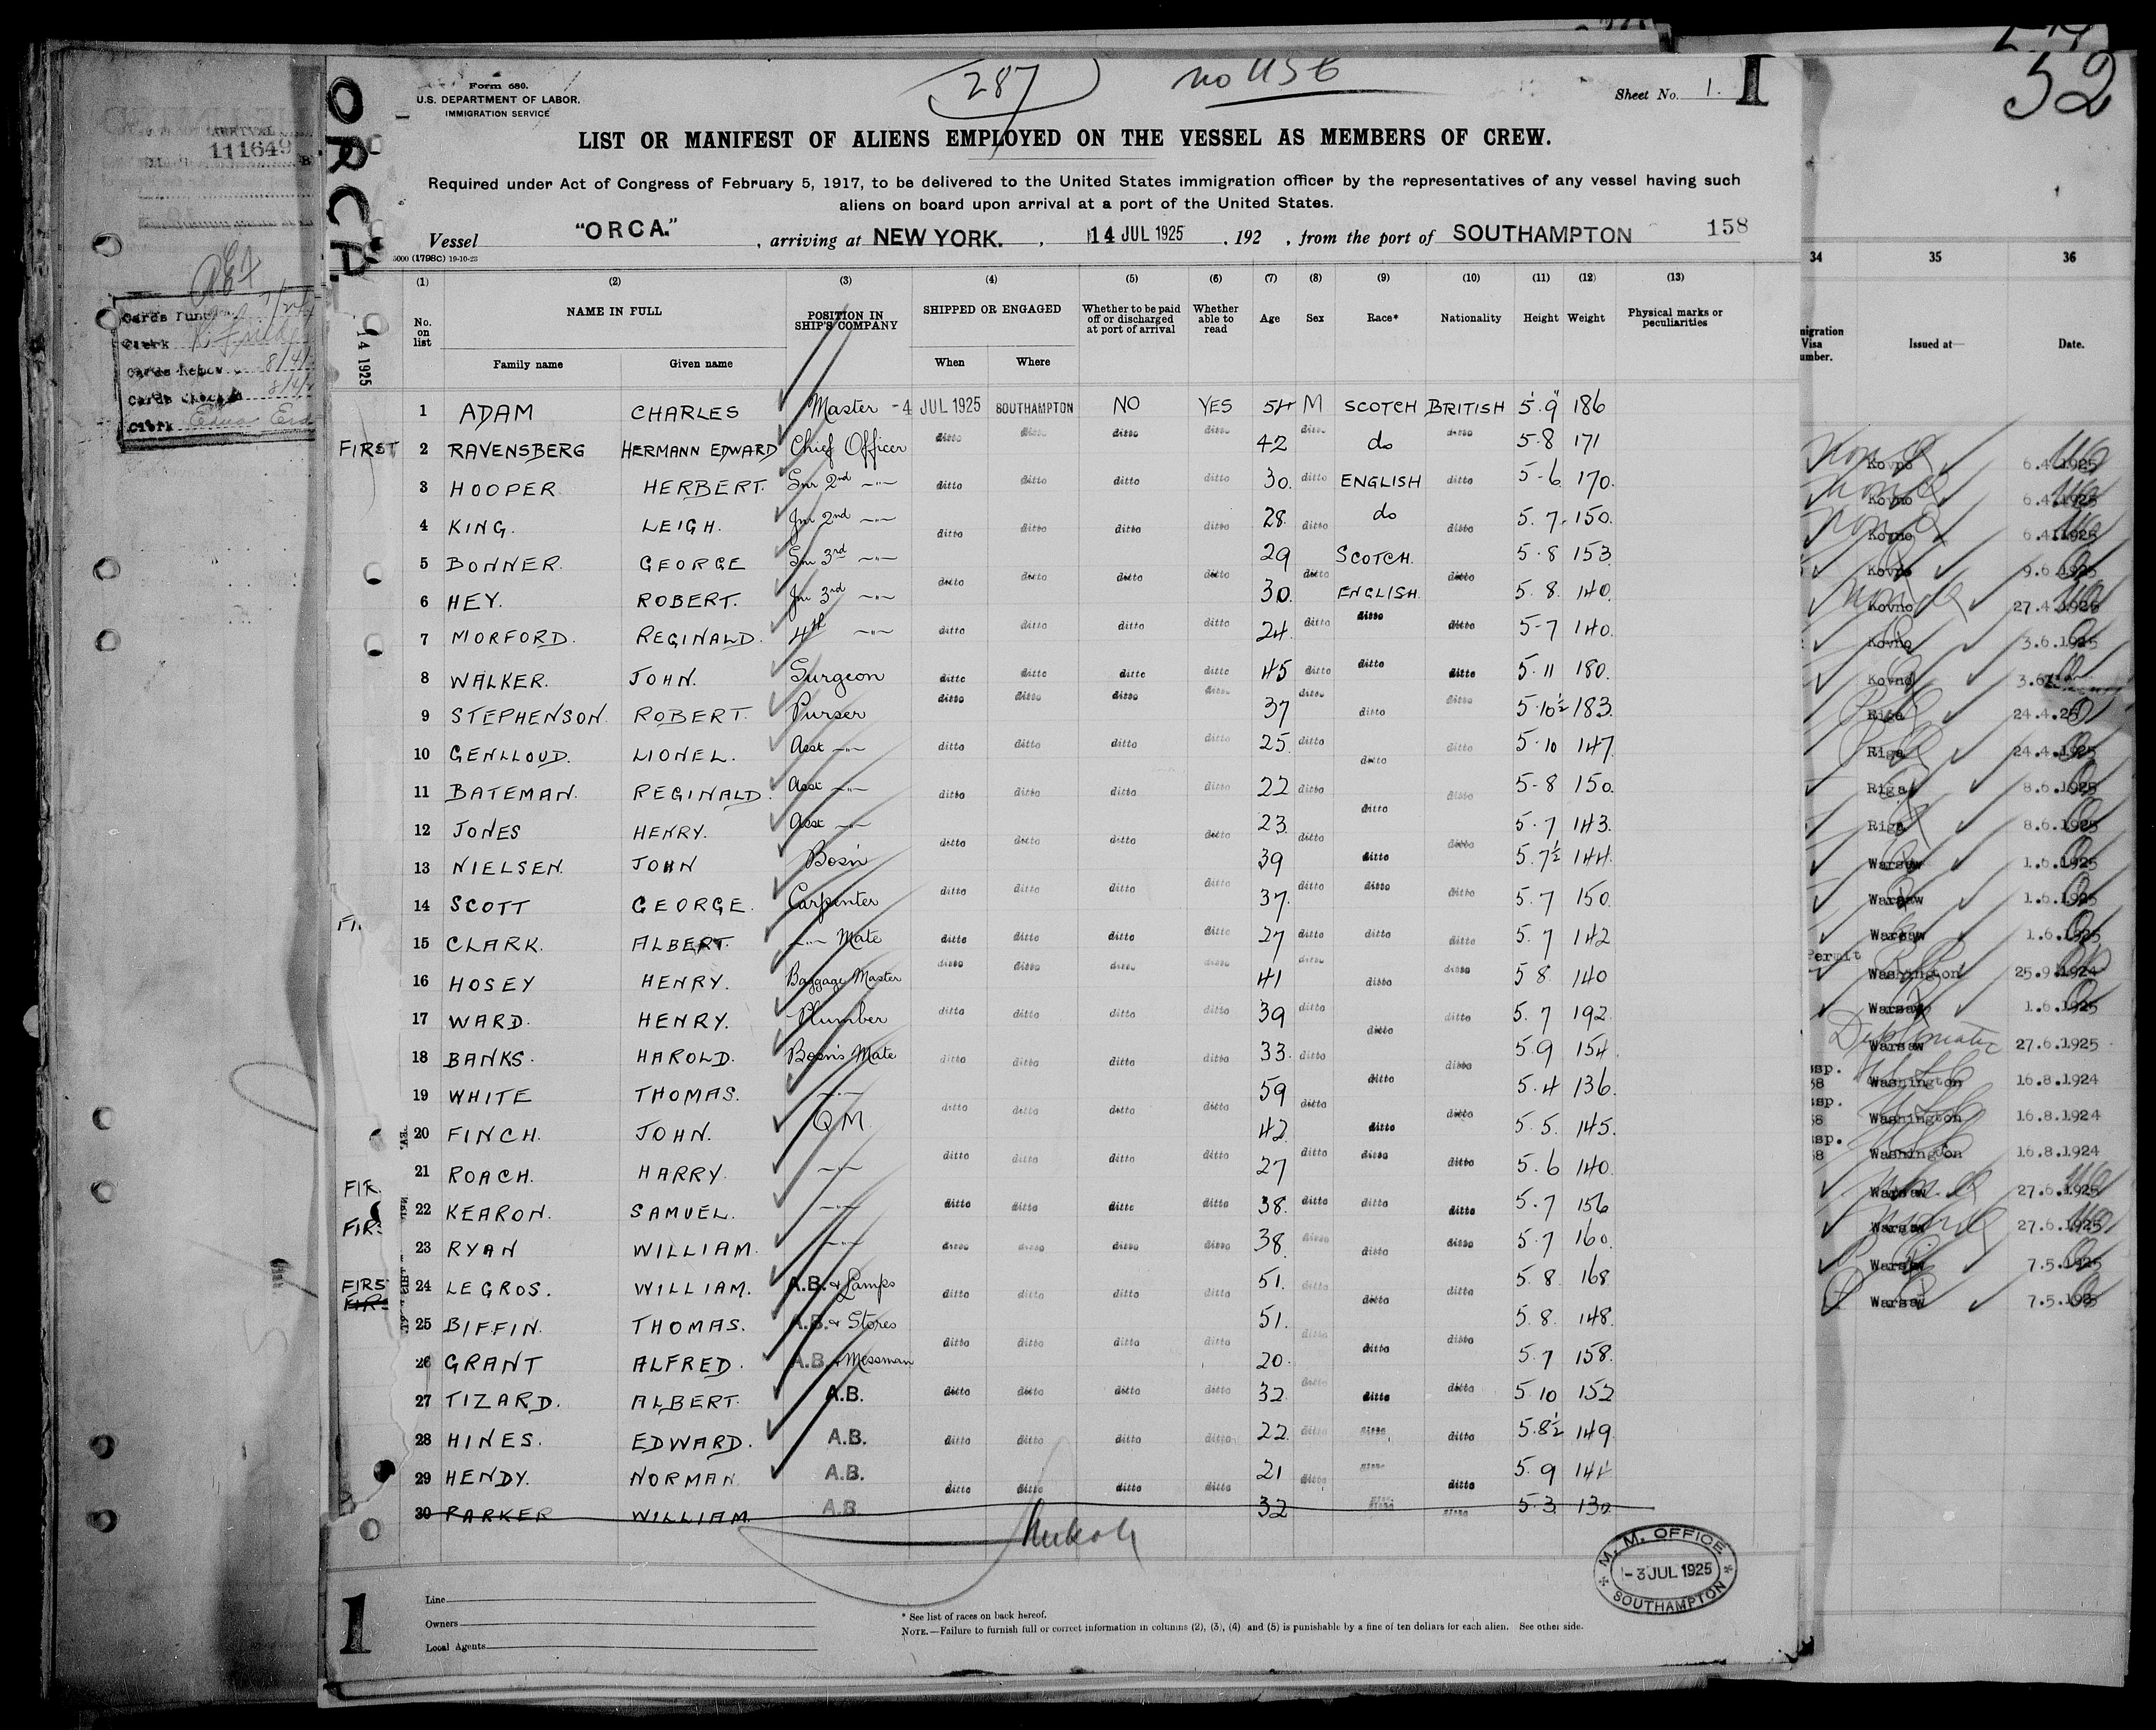 52
ORCA
287
no USC
Form 680.
U.S. DEPARTMENT OF LABOR.
IMMIGRATION SERVICE
Sheet No. 1. 1
ARRIVAL
111649
LIST OR MANIFEST OF ALIENS EMPLOYED ON THE VESSEL AS MEMBERS OF CREW.
Required under Act of Congress of February 5, 1917, to be delivered to the United States immigration officer by the representatives of any vessel having such
aliens on board upon arrival at a port of the United States.
Vessel "ORCA." , arriving at NEW YORK. , 14 JUL 1925 , 192 , from the port of SOUTHAMPTON 158
5000 (1798c) 19-10-23
(1) (2) (3) (4) (5) (6) (7) (8) (9) (10) (11) (12) (13)
No. on list NAME IN FULL POSITION IN SHIP'S COMPANY SHIPPED OR ENGAGED Whether to be paid off or discharged at port of arrival Whether able to read Age Sex Race* Nationality Height Weight Physical marks or peculiarities
Family name Given name When Where
14 1925
1 ADAM CHARLES Master -4 JUL 1925 SOUTHAMPTON NO YES 54 M SCOTCH BRITISH 5'.9" 186
FIRST 2 RAVENSBERG HERMANN EDWARD Chief Officer ditto ditto ditto ditto 42 ditto do ditto 5.8 171
3 HOOPER HERBERT. Snr 2nd -"- ditto ditto ditto ditto 30. ditto ENGLISH ditto 5-6 170.
4 KING. LEIGH. Jnr 2nd -"- ditto ditto ditto ditto 28. ditto do ditto 5.7. 150.
5 BONNER. GEORGE Snr 3rd -"- 29 SCOTCH. 5.8 153
6 HEY. ROBERT. Jnr 3rd -"- ditto ditto ditto ditto 30. ditto ENGLISH. ditto 5.8. 140.
7 MORFORD. REGINALD. 4th -"- ditto ditto ditto ditto 24. ditto ditto ditto 5-7 140.
8 WALKER. JOHN. Surgeon ditto ditto ditto ditto 45 ditto ditto ditto 5.11 180.
9 STEPHENSON. ROBERT. Purser ditto ditto ditto ditto 37 ditto ditto ditto 5.10½ 183.
10 GENLLOUD. LIONEL. Asst -"- ditto ditto ditto ditto 25. ditto ditto ditto 5.10 147.
11 BATEMAN. REGINALD. Asst -"- ditto ditto ditto ditto 22 ditto ditto ditto 5-8 150.
12 JONES HENRY. Asst -"- ditto ditto ditto ditto 23. ditto ditto 5.7 143.
13 NIELSEN. JOHN Bosn 39 ditto 5.7½ 144.
14 SCOTT GEORGE. Carpenter ditto ditto ditto ditto 37. ditto ditto ditto 5.7 150.
15 CLARK. ALBERT. -"- Mate ditto ditto ditto ditto 27 ditto ditto ditto 5.7 142
16 HOSEY HENRY. Baggage Master ditto ditto ditto ditto 41 ditto ditto ditto 5 8. 140
17 WARD. HENRY. Plumber ditto ditto ditto ditto 39 ditto ditto ditto 5.7 192.
18 BANKS. HAROLD. Bosn's Mate ditto ditto ditto ditto 33. ditto ditto 5.9 154.
19 WHITE THOMAS. -"- 59 ditto 5.4 136.
20 FINCH. JOHN. QM. ditto ditto ditto ditto 42 ditto ditto ditto 5.5. 145.
21 ROACH. HARRY. -"- ditto ditto ditto ditto 27 ditto ditto ditto 5.6 140.
22 KEARON. SAMUEL. -"- ditto ditto ditto ditto 38. ditto ditto ditto 5.7 156
23 RYAN WILLIAM. -"- ditto ditto ditto ditto 38. ditto ditto ditto 5.7 160.
24 LE GROS. WILLIAM. A.B. & Lamps ditto ditto ditto ditto 51. ditto ditto ditto 5.8. 168
25 BIFFIN. THOMAS. A.B. & Stores 51. ditto 5.8. 148.
26 GRANT ALFRED. A.B. & Messman ditto ditto ditto ditto 20. ditto ditto 5.7 158.
27 TIZARD. ALBERT. A.B. ditto ditto ditto ditto 32 ditto ditto ditto 5.10 152
28 HINES. EDWARD. A.B. ditto ditto ditto ditto 22. ditto ditto ditto 5.8½ 149.
29 HENDY. NORMAN. A.B. ditto ditto ditto ditto 21 ditto ditto ditto 5.9 144
30 PARKER WILLIAM. A.B. 32 ditto ditto 5.3. 130.
M. M. OFFICE
-3 JUL 1925
SOUTHAMPTON
1
Line
Owners
Local Agents
* See list of races on back hereof.
NOTE.—Failure to furnish full or correct information in columns (2), (3), (4) and (5) is punishable by a fine of ten dollars for each alien. See other side.
34 35 36
Visa Issued at— Date.
Kovno 6.4.1925
Kovno 6.4.1925
Kovno 6.4.1925
Kovno 9.6.1925
Kovno 27.4.1925
Kovno 3.6.1925
Kovno
Riga 24.4.25
Riga 24.4.1925
Riga 8.6.1925
Riga 8.6.1925
Warsaw 1.6.1925
Warsaw 1.6.1925
Warsaw 1.6.1925
Permit Washington 25.9.1924
Warsaw 1.6.1925
Diplomatic
Warsaw 27.6.1925
Washington 16.8.1924
Washington 16.8.1924
Washington 16.8.1924
Warsaw 27.6.1925
Warsaw 27.6.1925
Warsaw 7.5.1925
Warsaw 7.5.192